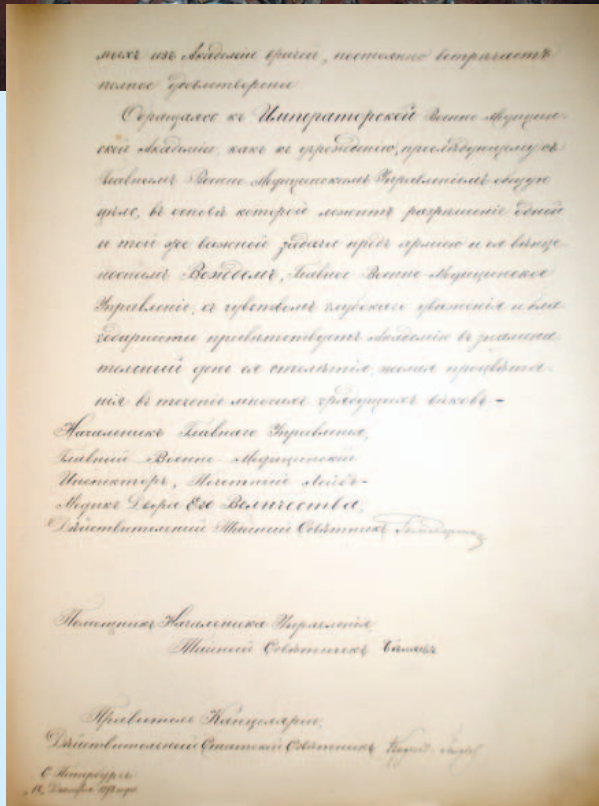 мыхъ изъ Академіи врачей, постоянно встрѣчаетъ
полное удовлетвореніе
Обращаясь къ Императорской Военно-Медицин-
ской Академіи, какъ къ учрежденію, преслѣдующему съ
Главнымъ Военно-Медицинскимъ Управленіемъ общую
цѣль, въ основѣ которой лежитъ разрѣшеніе одной
и той же важной задачи предъ арміею и ея вѣнце-
носнымъ Вождемъ, Главное Военно-Медицинское
Управленіе, съ чувствомъ глубокаго уваженія и бла
годарности привѣтствуетъ Академію въ знамена
тельный день ея столѣтія, желая процвѣта-
нія въ теченіе многихъ грядущихъ вѣковъ –
Начальникъ Главнаго Управленія,
Главный Военно-Медицинскій
Инспекторъ, Почетный Лейбъ-
Медикъ Двора Его Величества,
Дѣйствительный Тайный Совѣтникъ
Помощникъ Начальника Управленія
Тайный Совѣтникъ
Правитель Канцеляріи,
Дѣйствительный Статскій Совѣтникъ
С. Петербургъ
18 Декабря 1898 года